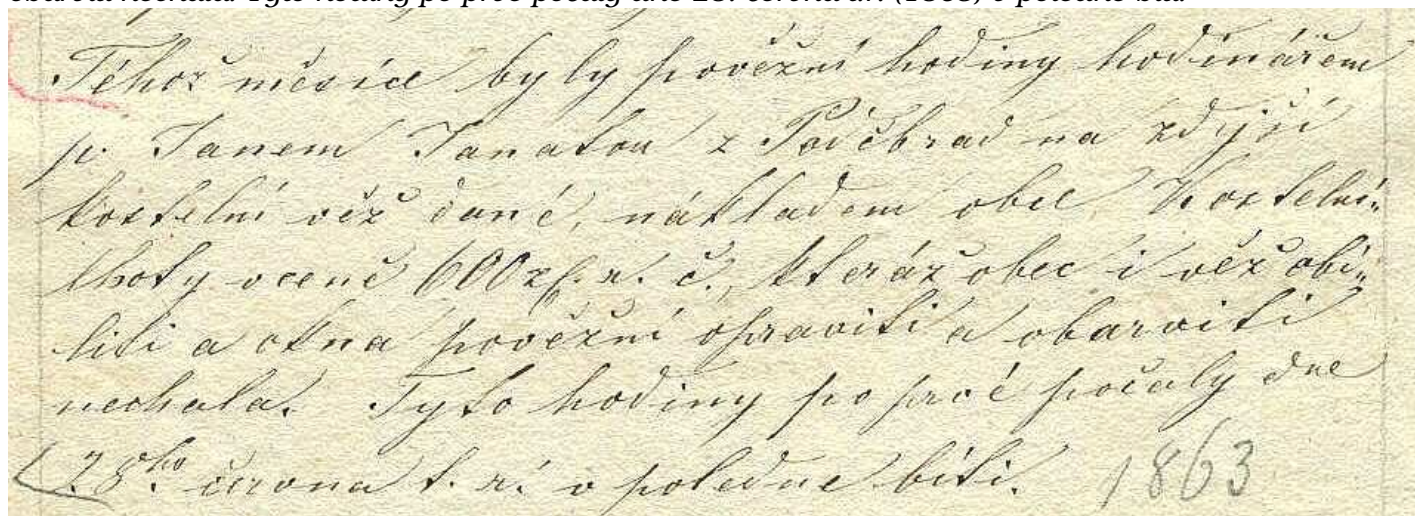 Téhož měsíce byly pověžní hodiny hodinářem
p. Janem Janatou z Poděbrad na zdejší
kostelní věž dané, nákladem obce Kostelní-
Lhoty v ceně 600 zl. r. č., kteráž obec i věž obí-
liti a okna pověžní opraviti a obarviti
nechala. Tyto hodiny po prvé počaly dne
28ho června t. r. o poledne bíti. 1863